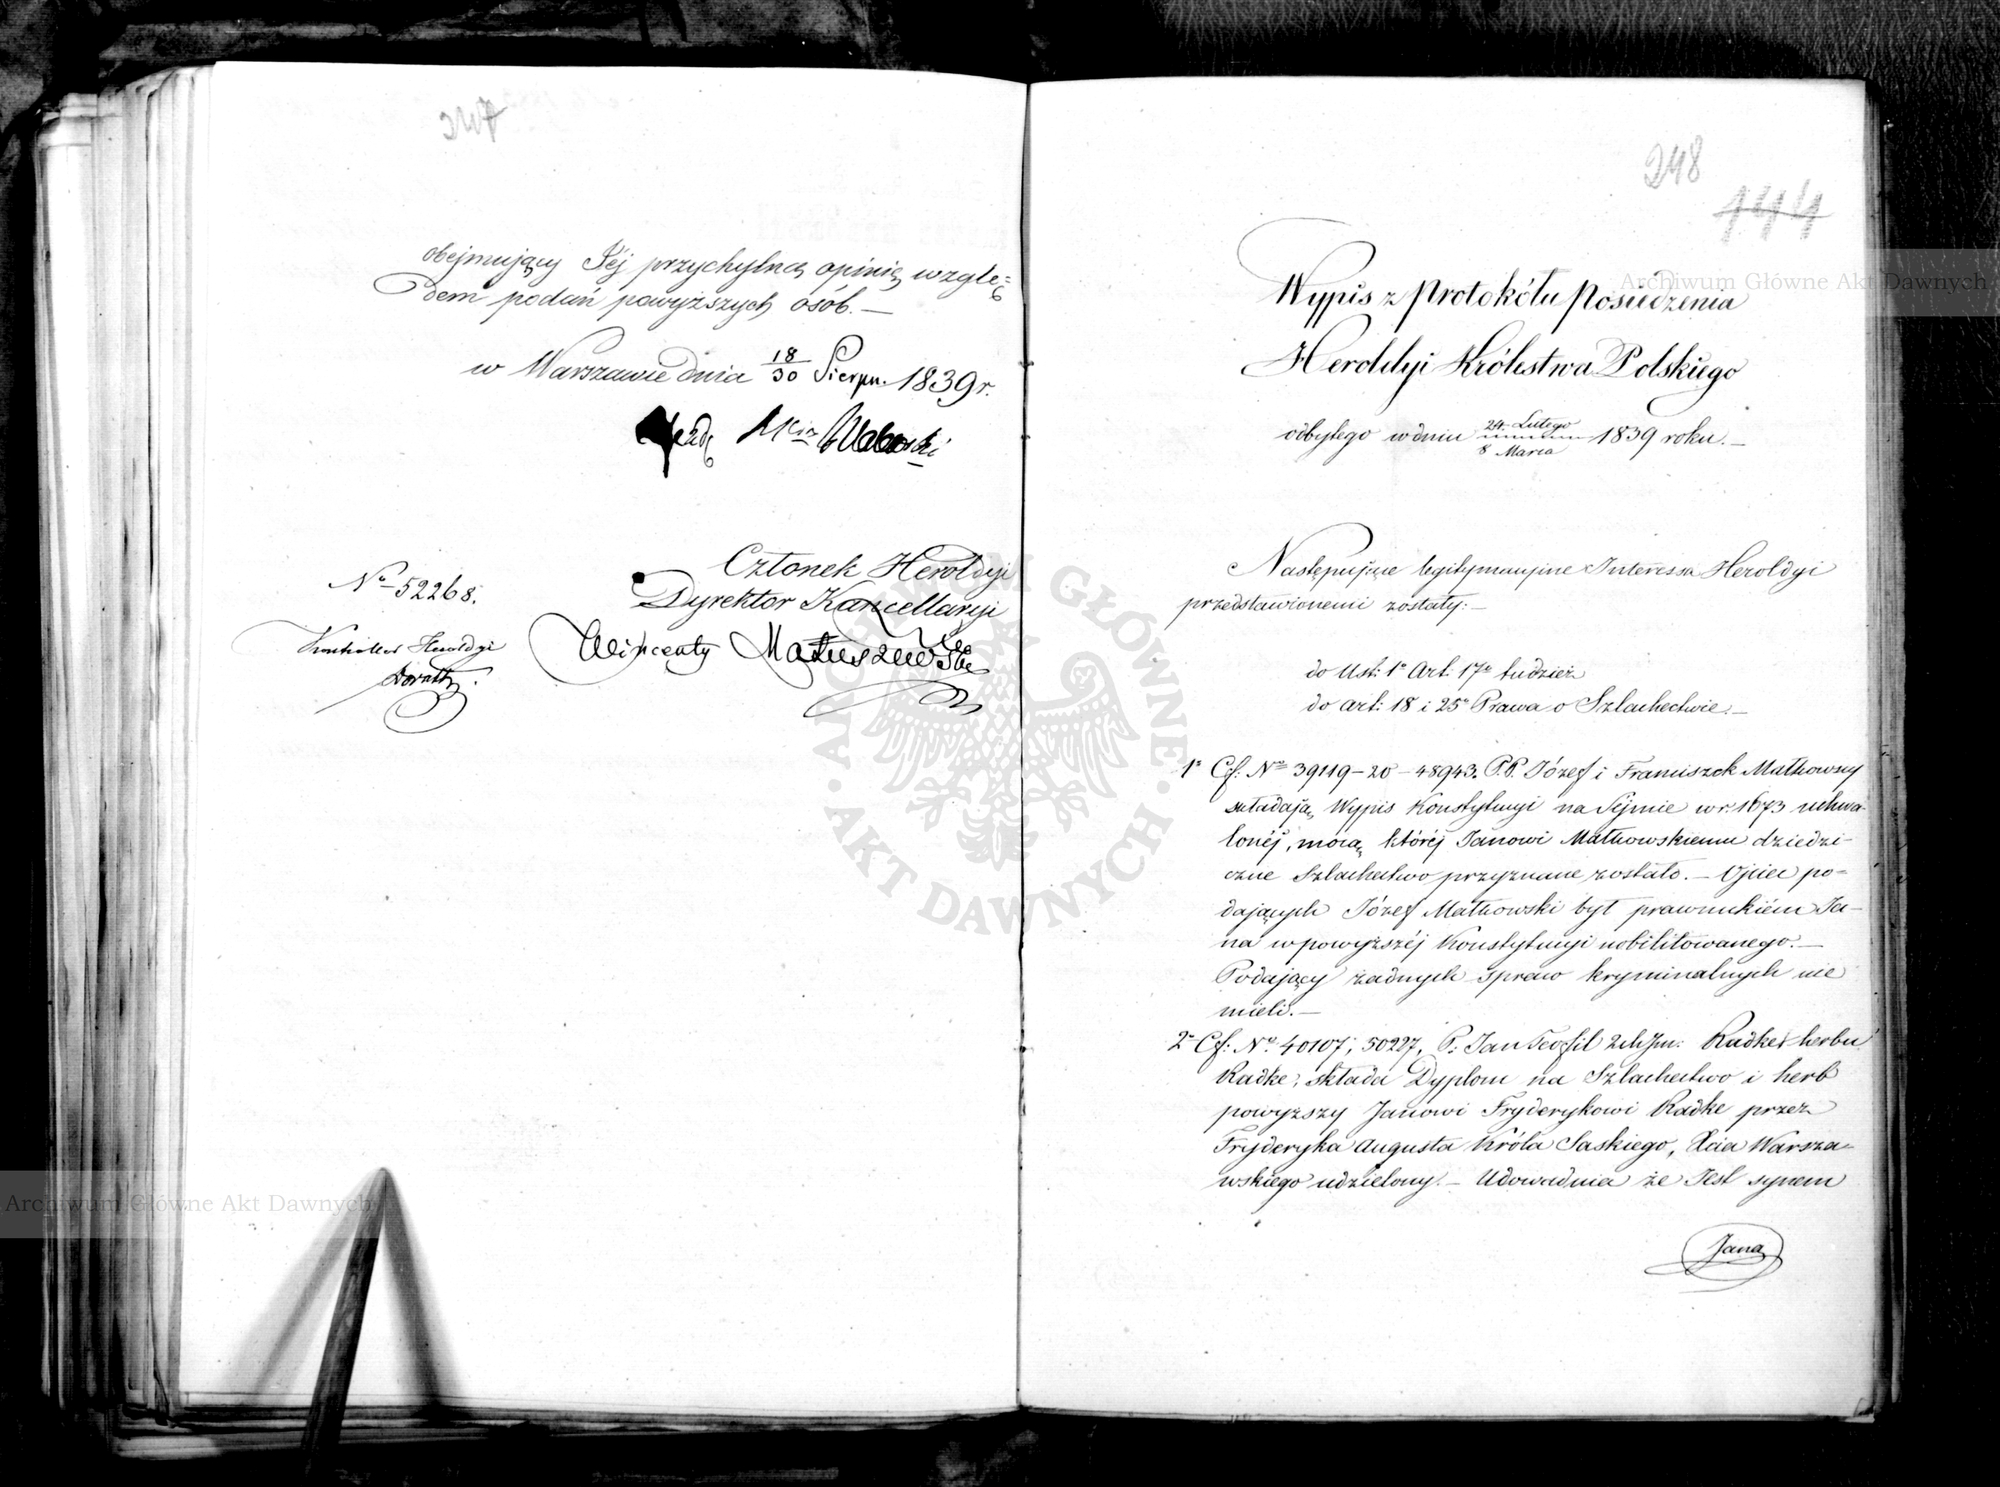 obejmujący Jéj przychylną opinię wzglę=
dem podań powyższych osób. —
w Warszawie dnia 18/30 Sierpn. 1839 r.
Członek Heroldyi
Dyrektor Kancellaryi
Wincenty Matuszewski
No 52268.
Kontroller Heroldyi
248
144
Wypis z Protokółu Posiedzenia
Heroldyi Królestwa Polskiego
odbytego w dniu 24 Lutego / 8 Marca 1839 roku. —
Następujące legitymacyjne Interessa Heroldyi
przedstawionemi zostały: —
do Ust: 1o Art: 17o tudzież
do art: 18 i 25o Prawa o Szlachectwie. —
1o Cf: No 39119-20-48943. P.P. Józef i Franciszek Małkowscy
składają Wypis Konstytucyi na Sejmie w r. 1673 uchwa-
lonéj, mocą któréj Janowi Małkowskiemu dziedzi-
czne Szlachectwo przyznane zostało. — Ojciec po=
dających Józef Małkowski był prawnukiém Ja-
na w powyższéj Konstytucyi nobilitowanego. —
Podający żadnych spraw kryminalnych nie
mieli. —
2o Cf: No 40107, 50227, P: Jan Teofil 2ch Im: Radke herbu
Radke, składa Dyplom na Szlachectwo i herb
powyższy Janowi Fryderykowi Radke przez
Fryderyka Augusta Króla Saskiego, Xcia Warsza-
wskiego udzielony. — Udowadnia że Jest synem
Jana
Archiwum Główne Akt Dawnych
Archiwum Główne Akt Dawnych
ARCHIWUM GŁÓWNE AKT DAWNYCH